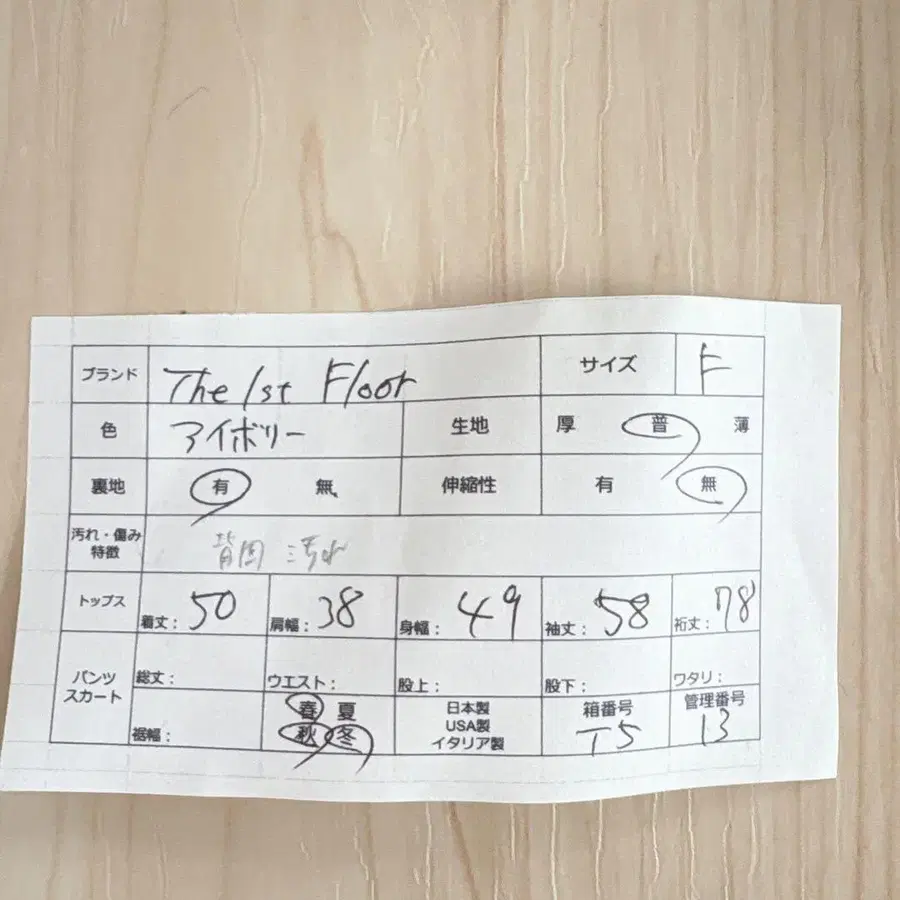 ブランド The 1st Floor サイズ F
色 アイボリー 生地 厚 普 薄
裏地 有 無 伸縮性 有 無
汚れ・傷み
特徴 汚れ
トップス 着丈: 50 肩幅: 38 身幅: 49 袖丈: 58 裄丈: 78
パンツ
スカート 総丈: ウエスト: 股上: 股下: ワタリ:
裾幅: 春 夏
秋 冬
日本製
USA製
イタリア製
箱番号
T5
管理番号
13